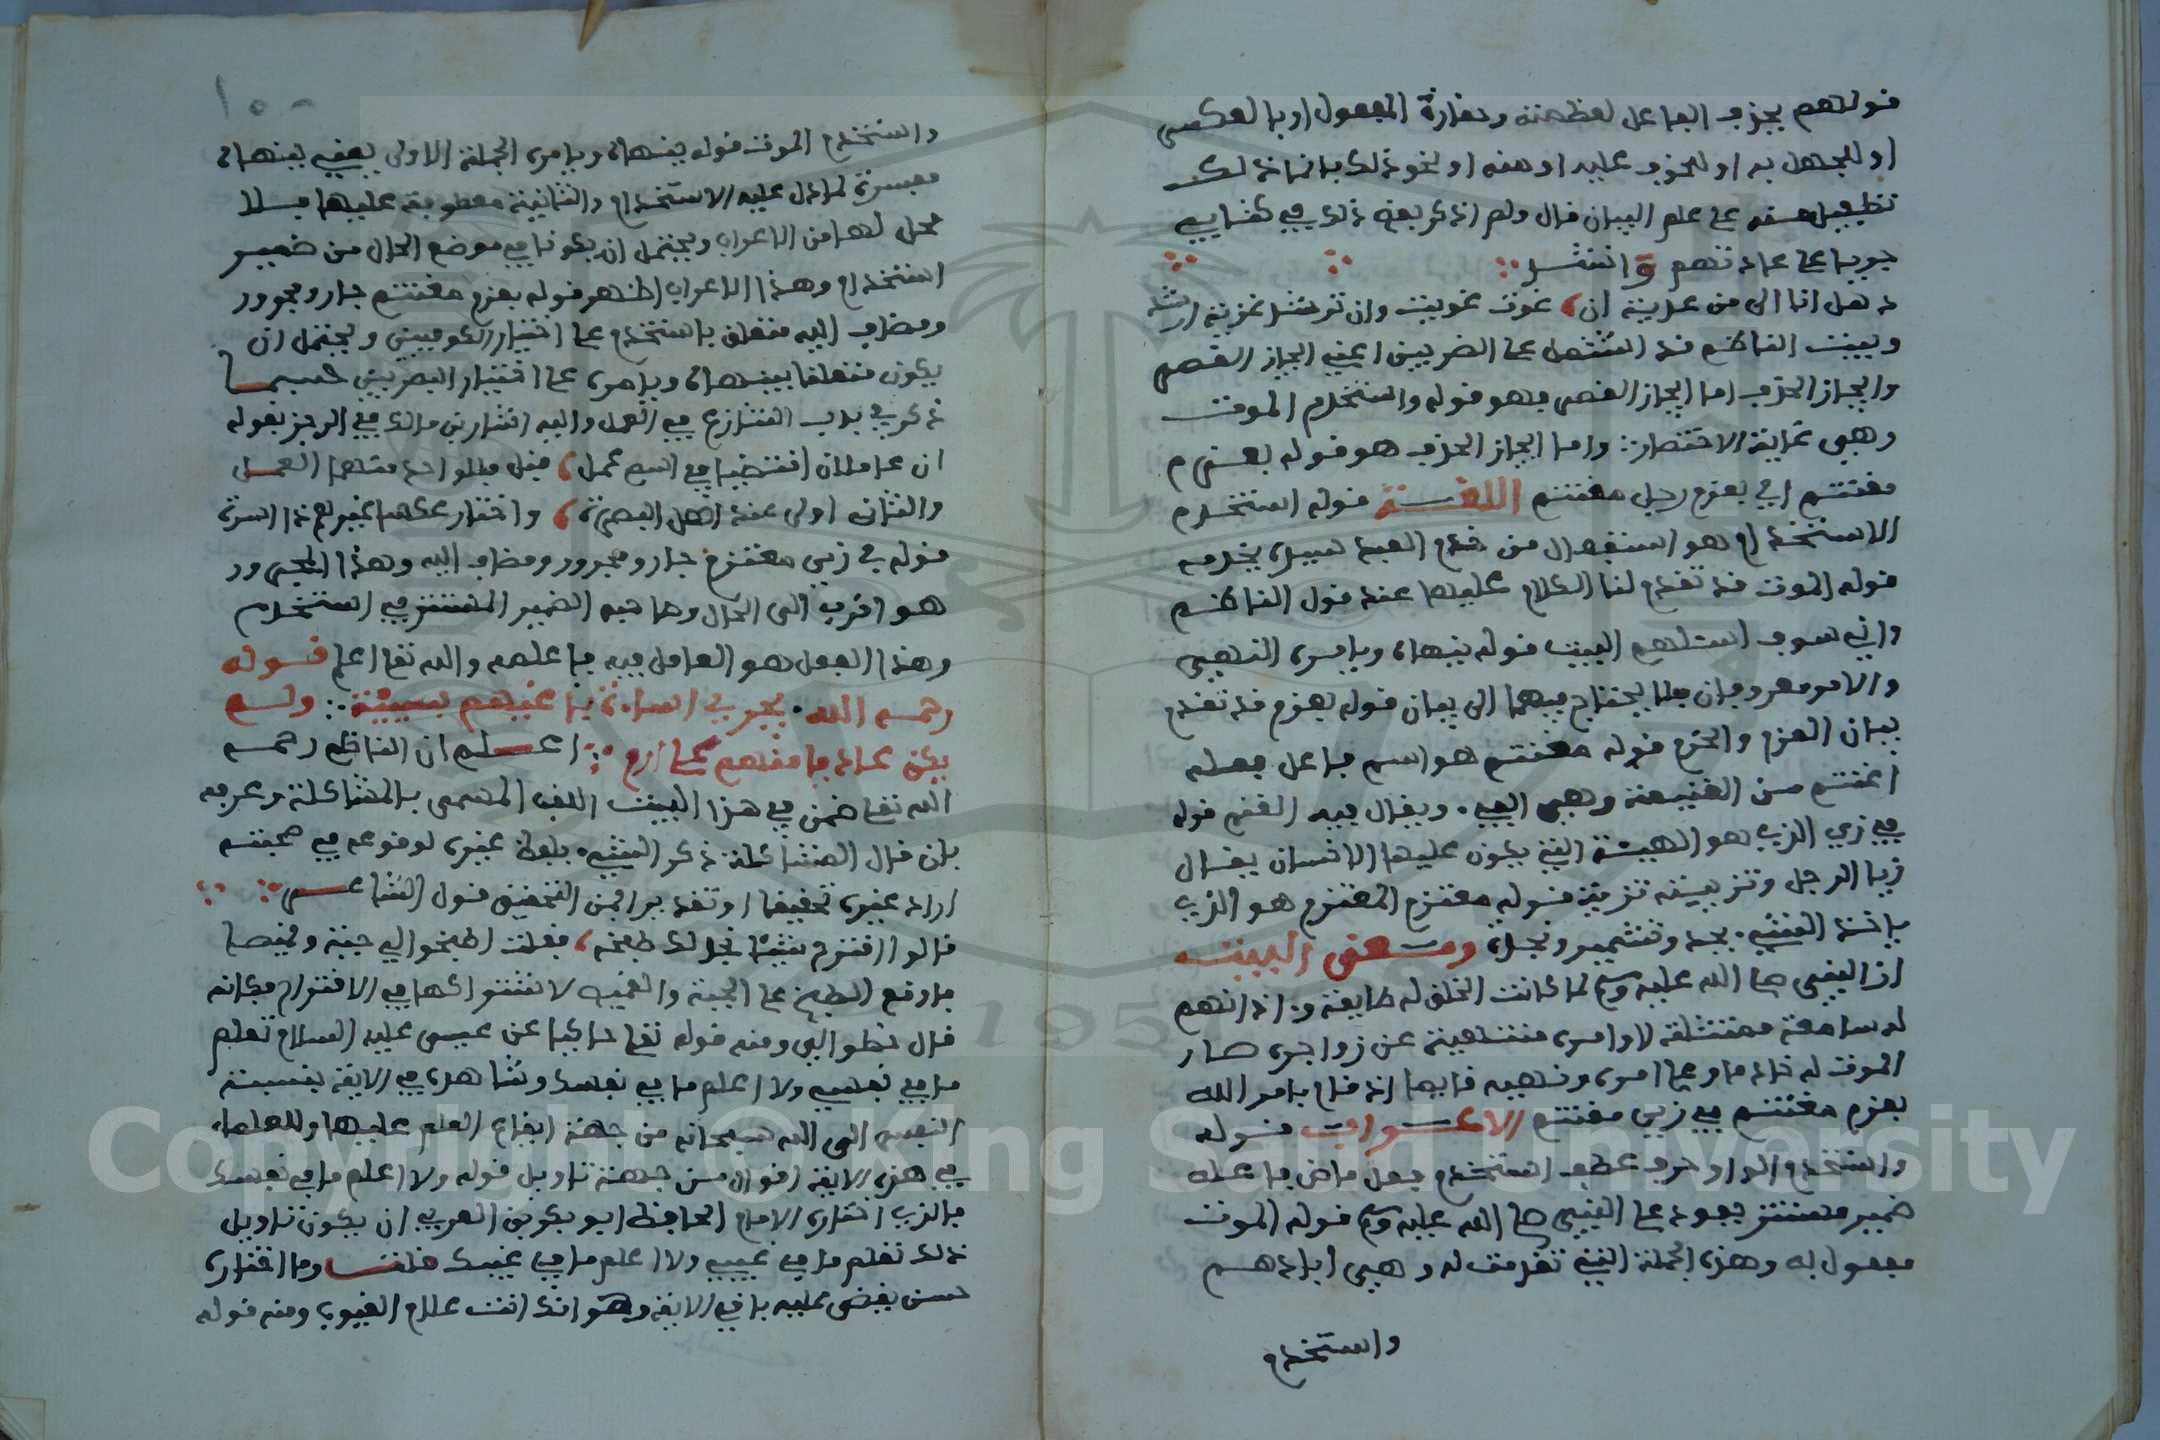 قولهم يحذف الفاعل لعظمته وحقارة المفعول او بالعكس
او للجهل به او للخوف عليه او منه او نحو ذلك بانما ذلك
تطفيل منه على علم البيان قال ولم اذكر بعد ذلك في كتابي
جريا على عادتهم وانشد
وهل انا الا من غزية ان غوت غويت وان ترشد غزية ارشد
وبيت الناظم قد اشتمل على الضربين اعني ايجاز القصر
وايجاز الحذف اما ايجاز القصر فهو قوله واستخدم الموت
وهي غاية الاختصار واما ايجاز الحذف هو قوله بعزم
مغتنم اي بعزم رجل مغتنم اللغة قوله استخدم
الاستخدام هو استفعال من خدم العبد سيده يخدمه
قوله الموت قد تقدم لنا الكلام عليها عند قول الناظم
واني سوف استلهم البيت قوله ينهاه ويامره النهي
والامر معروفان فلا يحتاج فيهما الى بيان قوله بعزم قد تقدم
بيان العزم والحزم قوله مغتنم هو اسم فاعل فعله
اغتنم من الغنيمة وهي الفيء ويقال فيه الغنم قوله
في زي الزي هو الهيئة التي يكون عليها الانسان يقال
زيا الرجل وتزيينه تزية قوله مغتزم المغتزم هو الذي
ياخذ الشيء بجد وتشمير ونجدة ومعنى البيت
ان النبي صلى الله عليه وسلم لما كانت الخلق له طايعة واذانهم
له سامعة ممتثلة لاوامره منتهية عن زواجره صار
الموت له خادما وعلى امره ونهيه قايما اذ قام بامر الله
بعزم مغتنم في زي مغتنم الاعراب قوله
واستخدم الواو حرف عطف استخدم فعل ماض فاعله
ضمير مستتر يعود على النبي صلى الله عليه وسلم قوله الموت
مفعول به وهذه الجملة التي تقدمت له وهي ابادهم
واستخدم
١٠٠
واستخدم الموت قوله ينهاه ويامره الجملة الاولى يعني ينهاه
مفسرة لما دل عليه الاستخدام والثانية معطوفة عليها فلا
محل لها من الاعراب ويحتمل ان يكونا في موضع الحال من ضمير
استخدام وهذا الاعراب اظهر قوله بعزم مغتنم جار ومجرور
ومضاف اليه متعلق باستخدم على اختيار الكوفيين ويحتمل ان
يكون متعلقا بينهاه ويامره على اختيار البصريين حسبما
ذكر في باب التنازع في العمل واليه اشار بن مالك في الرجز بقوله
ان عاملان اقتضيا في اسم عمل قبل فللواحد منهما العمل
والثاني اولى عند اهل البصرة واختار عكسا غيرهم ذا اسرة
قوله في زي مغتزم جار ومجرور ومضاف اليه وهذا المجرور
هو اقرب الى الحال وصاحبه الضمير المستتر في استخدم
وهذا الفعل هو العامل فيه فاعلمه والله تعالى اعلم قوله
رحمه الله يجزي اساءة باغيهم بسيئة ولم
يكن عاديا منهم على ارم اعلم ان الناظم رحمه
الله تعالى ضمن في هذا البيت اللقب المسمى بالمشاكلة وعرفه
بان قال المشاكلة ذكر الشيء بلفظ غيره لوقوعه في صحبته
اراد غيره تحقيقا او تقديرا فمن التحقيق قول الشاعر
قالوا اقترح شيئا نجد لك طبخه فقلت اطبخوا لي جبة وقميصا
فاوقع الطبخ على الجبة والقميص لاشتراكها في الاقتراح فكانه
قال خيطوا لي ومنه قوله تعالى حاكيا عن عيسى عليه السلام تعلم
ما في نفسي ولا اعلم ما في نفسك وشاهده في الاية نسبة
النفس الى الله سبحانه من جهة ايقاع العلم عليها وللعلماء
في هذه الاية اقوال من جهة تاويل قوله ولا اعلم ما في نفسك
فالذي اختاره الامام الحافظ ابو بكر بن العربي ان يكون تاويل
ذلك تعلم ما في غيبي ولا اعلم ما في غيبك قلت وما اختاره
حسن يقضي عليه باقي الاية وهو انك انت علام الغيوب ومنه قوله